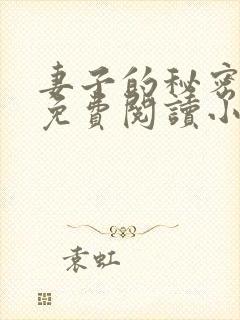 妻子的秘密
免費閱讀小
袁虹